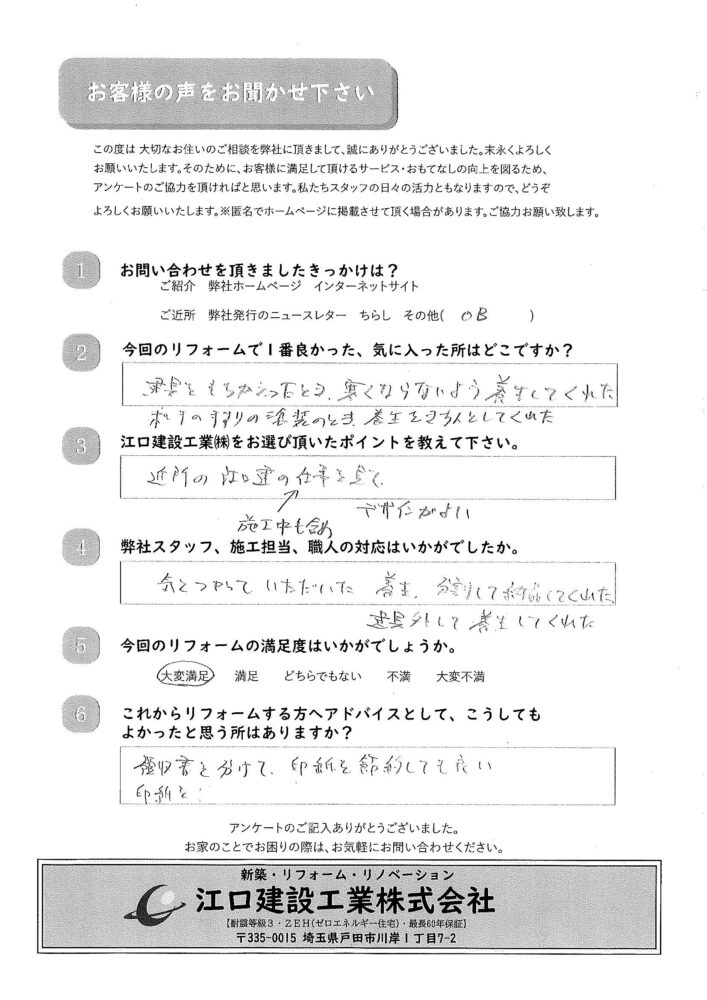 お客様の声をお聞かせ下さい
この度は 大切なお住いのご相談を弊社に頂きまして、誠にありがとうございました。末永くよろしく
お願いいたします。そのために、お客様に満足して頂けるサービス・おもてなしの向上を図るため、
アンケートのご協力を頂ければと思います。私たちスタッフの日々の活力ともなりますので、どうぞ
よろしくお願いいたします。※匿名でホームページに掲載させて頂く場合があります。ご協力お願い致します。
1 お問い合わせを頂きましたきっかけは？
ご紹介 弊社ホームページ インターネットサイト
ご近所 弊社発行のニュースレター ちらし その他( OB )
2 今回のリフォームで1番良かった、気に入った所はどこですか？
建具をもちかえったとき、寒くならないよう養生してくれた
の手すりの塗装のとき、養生をきちんとしてくれた
3 江口建設工業㈱をお選び頂いたポイントを教えて下さい。
近所の江口建の仕事を見て
施工中も含め デザインがよい
4 弊社スタッフ、施工担当、職人の対応はいかがでしたか。
気をつかって いただいた 養生、分割して納品してくれた
建具外して養生してくれた
5 今回のリフォームの満足度はいかがでしょうか。
大変満足 満足 どちらでもない 不満 大変不満
6 これからリフォームする方へアドバイスとして、こうしても
よかったと思う所はありますか？
領収書を分けて、印紙を節約しても良い
印紙を
アンケートのご記入ありがとうございました。
お家のことでお困りの際は、お気軽にお問い合わせください。
新築・リフォーム・リノベーション
江口建設工業株式会社
【耐震等級3・ZEH(ゼロエネルギー住宅)・最長60年保証】
〒335-0015 埼玉県戸田市川岸1丁目7-2